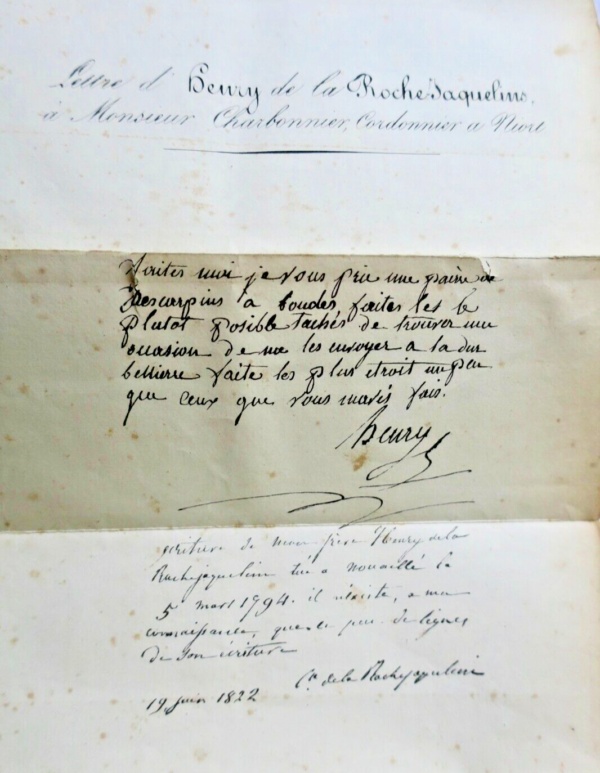 Lettre d' Henry de la RocheJaquelins,
à Monsieur Charbonnier, Cordonnier a Niort
faites moi je vous prie une paire de
descarpins à boucles faites les le
plutot posible tachés de trouver une
occasion de me les envoyer a la dur
bellierre faite les plus etroit un peu
que ceux que vous mavés fais.
henry
écriture de mon frère Henry de la
Rochejaquelein tué a nouaillé le
5 mars 1794. il n'éxiste, a ma
connaissance, que ce peu de lignes
de son écriture
C. de la Rochejaquelein
19 juin 1822